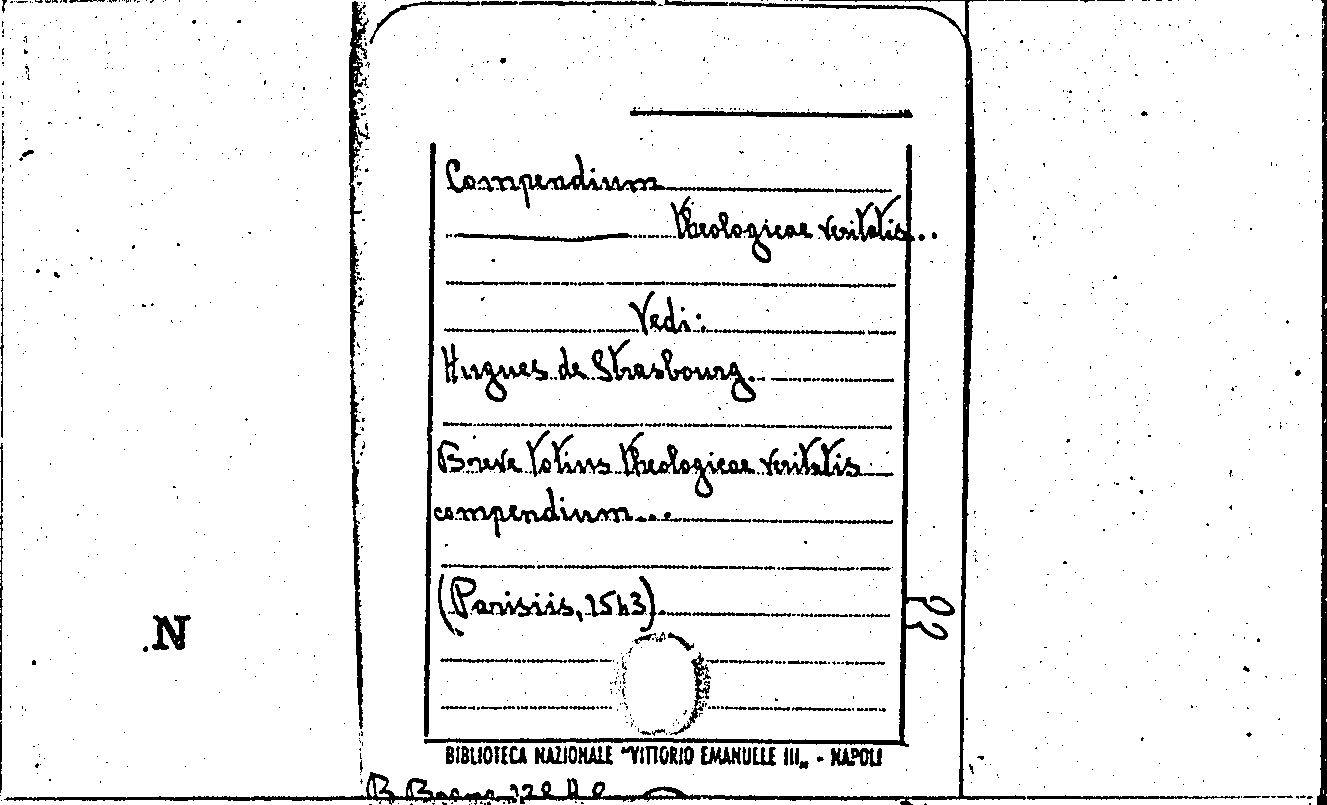 Compendium
theologicae veritatis...
Vedi:
Hugues de Strasbourg.
Breve totius theologicae veritatis
compendium...
(Parisiis, 1543).
N
BIBLIOTECA NAZIONALE "VITTORIO EMANUELE III„ - NAPOLI